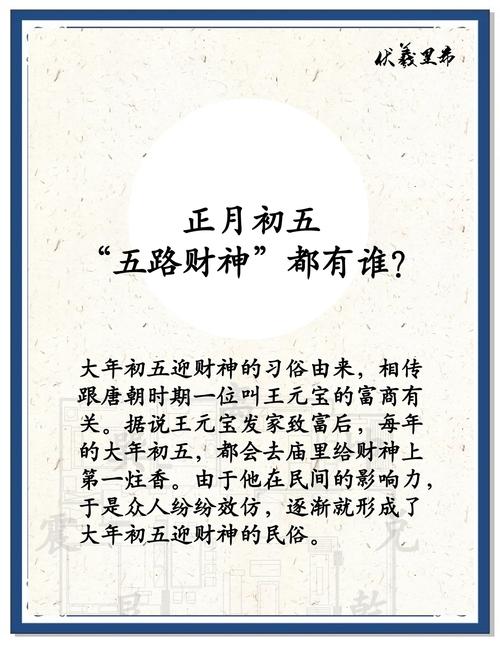 伏羲里希
正月初五
“五路财神”都有谁?
大年初五迎财神的习俗由来，相传
跟唐朝时期一位叫王元宝的富商有
关。据说王元宝发家致富后，每年
的大年初五，都会去庙里给财神上
第一炷香。由于他在民间的影响力，
于是众人纷纷效仿，逐渐就形成了
大年初五迎财神的民俗。
震
兑